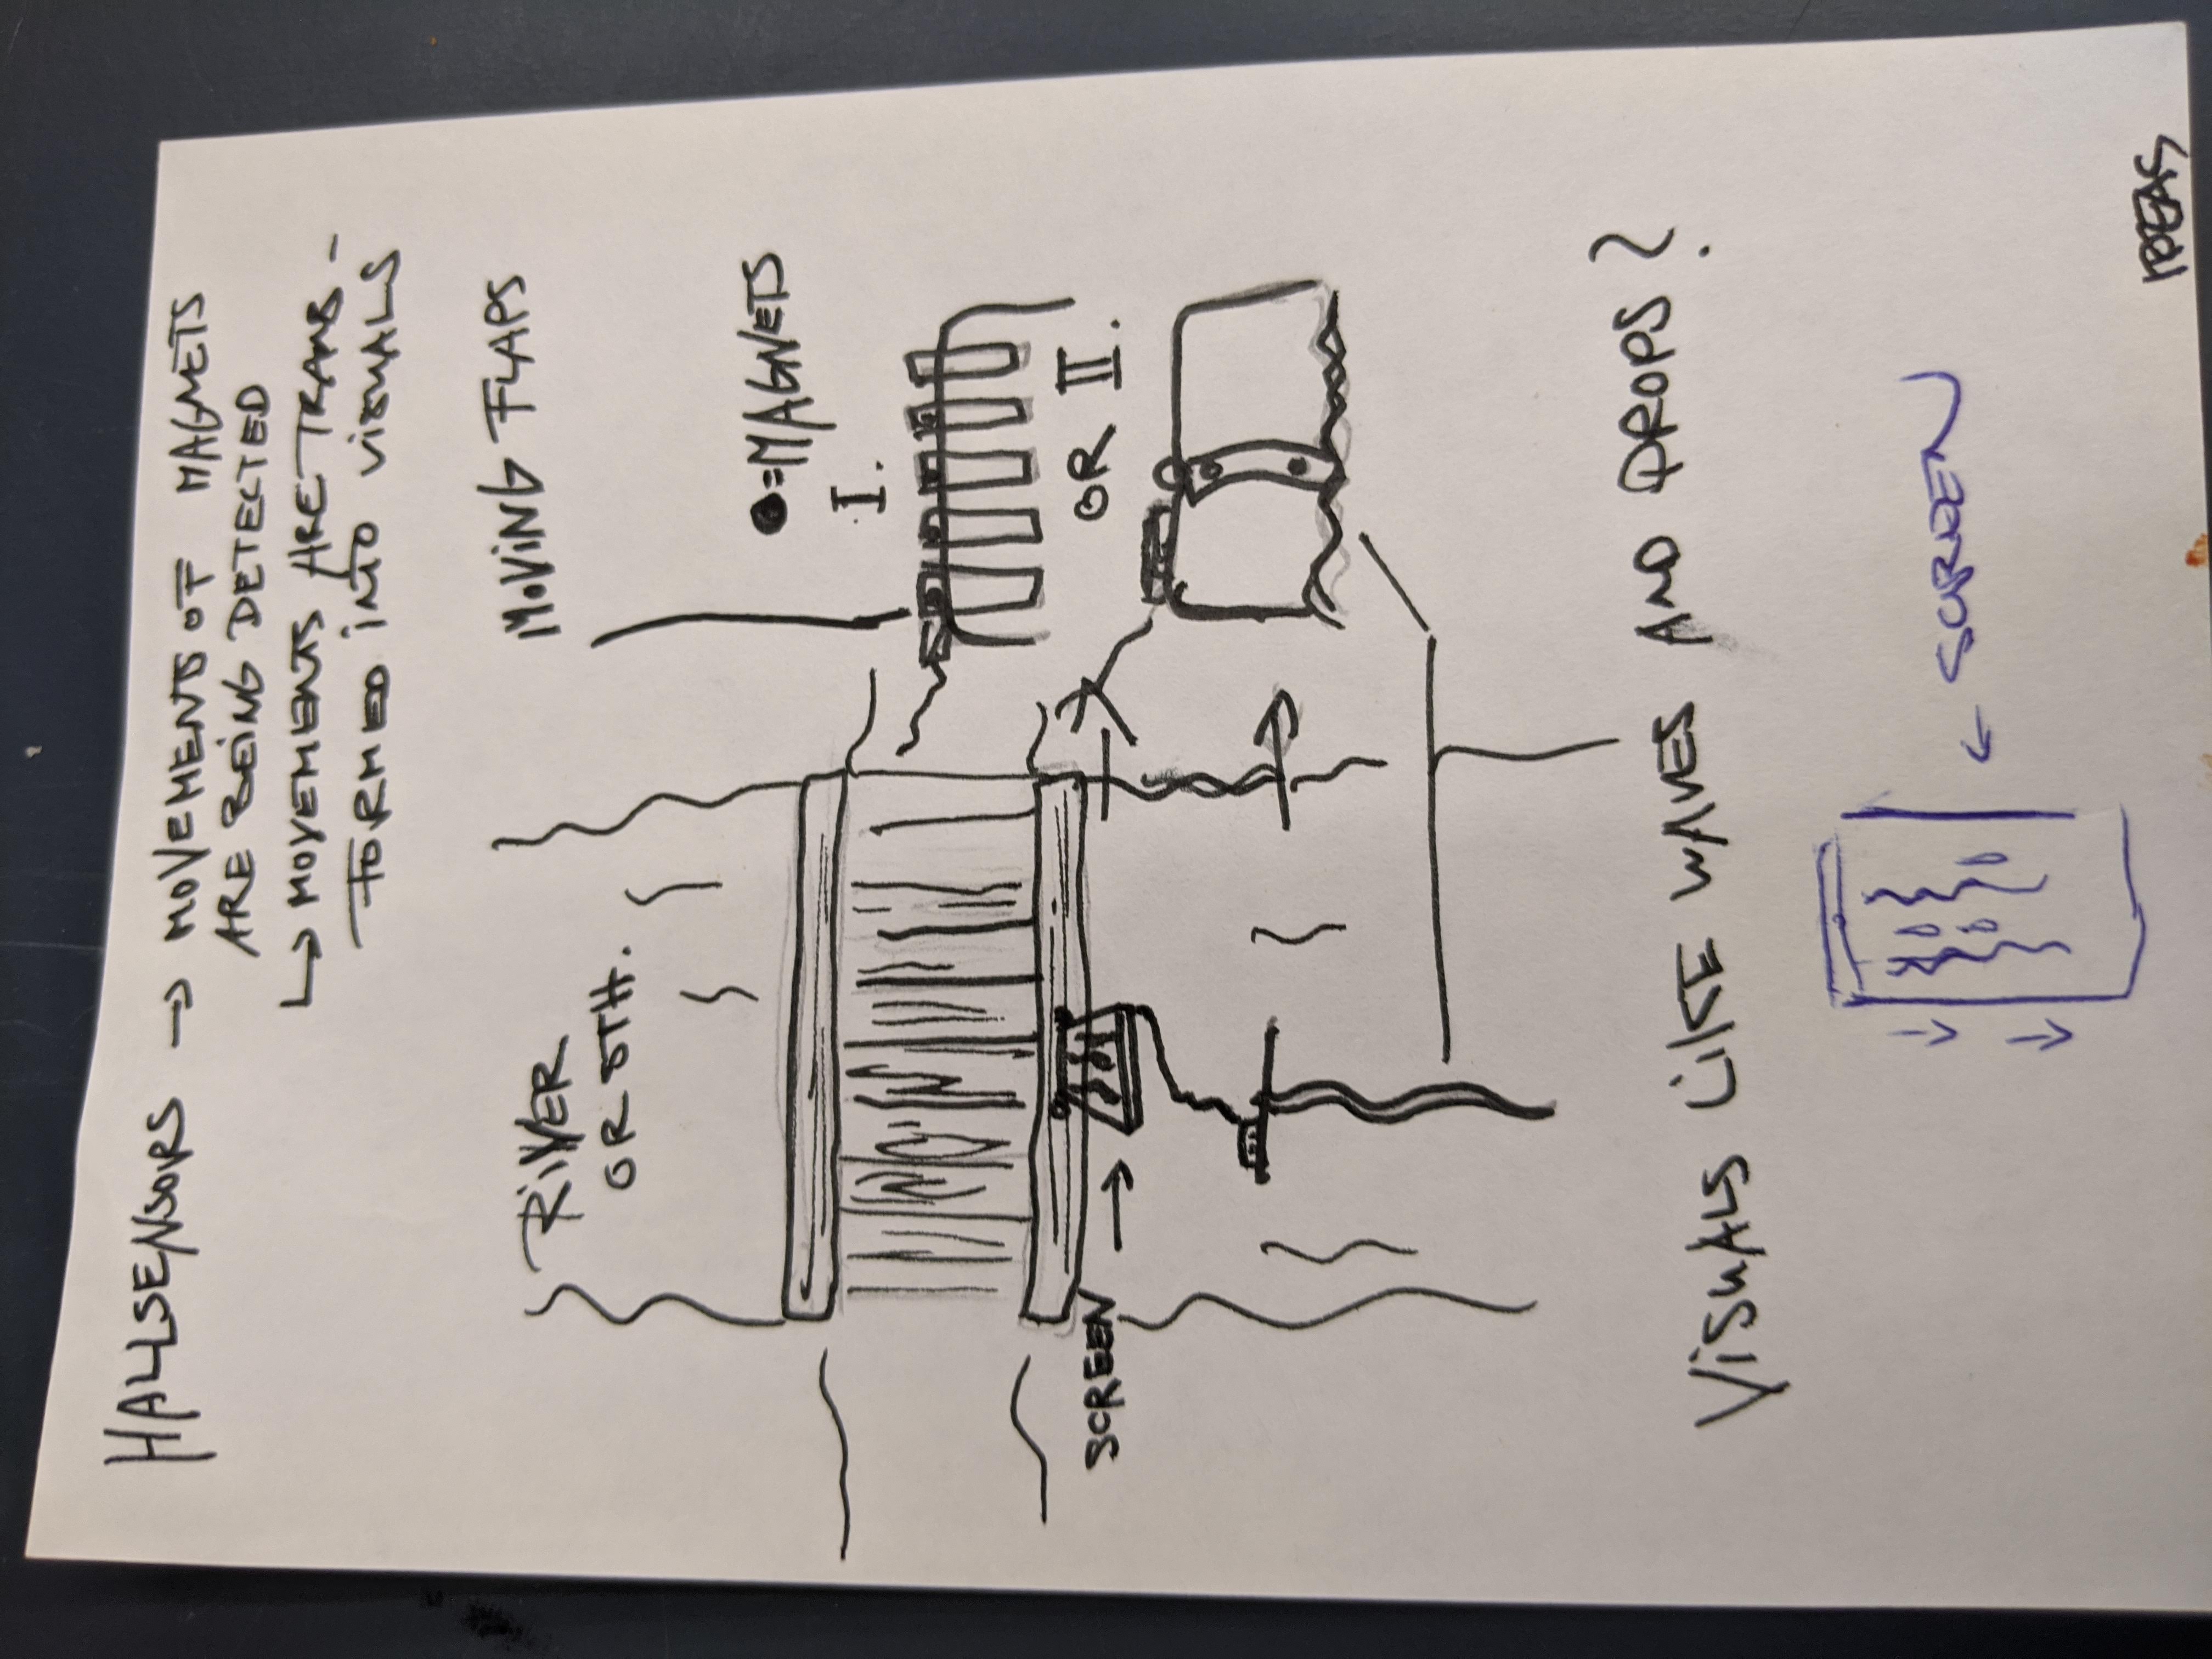 HALLSENSORS → MOVEMENTS OF MAGNETS
ARE BEING DETECTED
↳ MOVEMENTS ARE TRANS-
FORMED INTO VISUALS
RIVER
OR OTH.
MOVING FLAPS
●=MAGNETS
I.
OR II.
SCREEN →
VISUALS LIKE WAVES AND DROPS?
← SCREEN